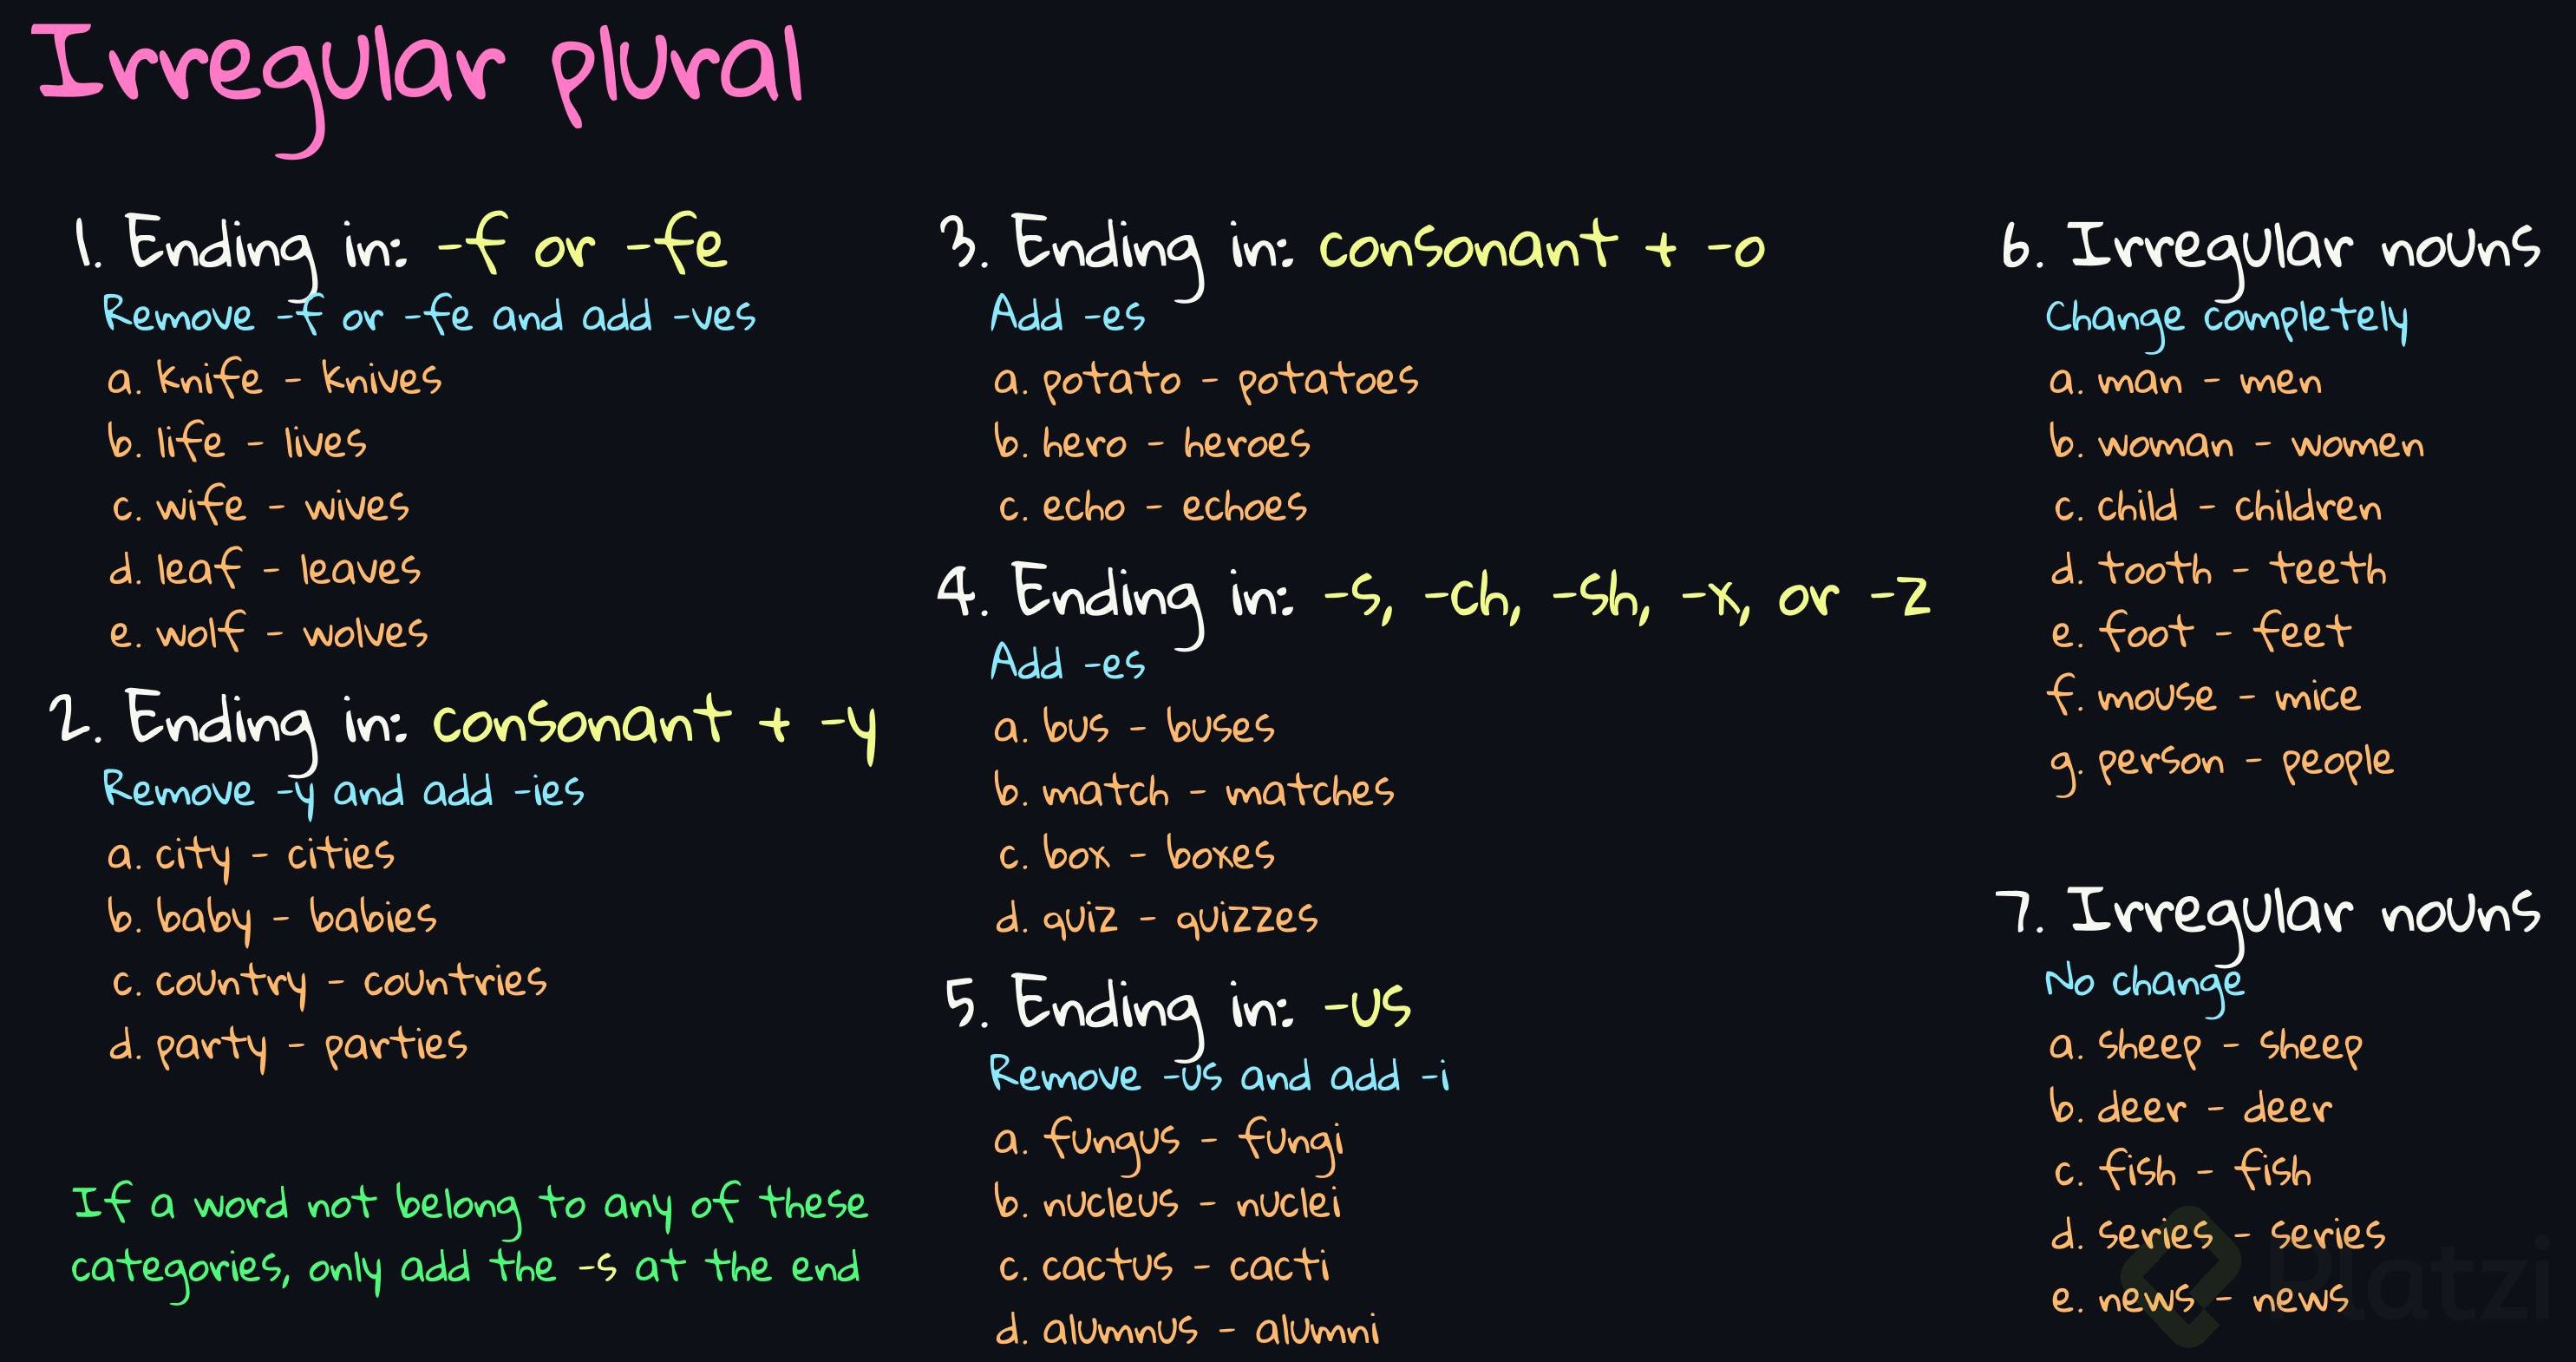 Irregular plural
1. Ending in: -f or -fe
Remove -f or -fe and add -ves
a. knife - knives
b. life - lives
c. wife - wives
d. leaf - leaves
e. wolf - wolves
2. Ending in: consonant + -y
Remove -y and add -ies
a. city - cities
b. baby - babies
c. country - countries
d. party - parties
If a word not belong to any of these
categories, only add the -s at the end
3. Ending in: consonant + -o
Add -es
a. potato - potatoes
b. hero - heroes
c. echo - echoes
4. Ending in: -s, -ch, -sh, -x, or -z
Add -es
a. bus - buses
b. match - matches
c. box - boxes
d. quiz - quizzes
5. Ending in: -us
Remove -us and add -i
a. fungus - fungi
b. nucleus - nuclei
c. cactus - cacti
d. alumnus - alumni
6. Irregular nouns
Change completely
a. man - men
b. woman - women
c. child - children
d. tooth - teeth
e. foot - feet
f. mouse - mice
g. person - people
7. Irregular nouns
No change
a. sheep - sheep
b. deer - deer
c. fish - fish
d. series - series
e. news - news
Platzi